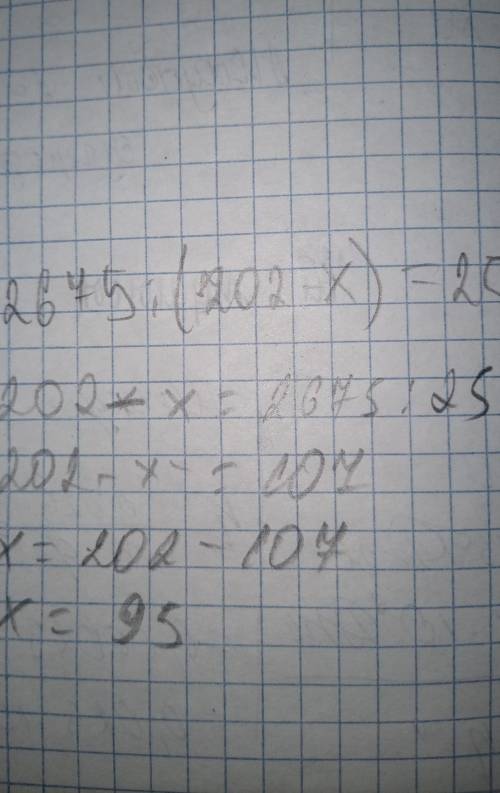 2675 : (202 - x) = 25
202 - x = 2675 : 25
202 - x = 107
x = 202 - 107
x = 95